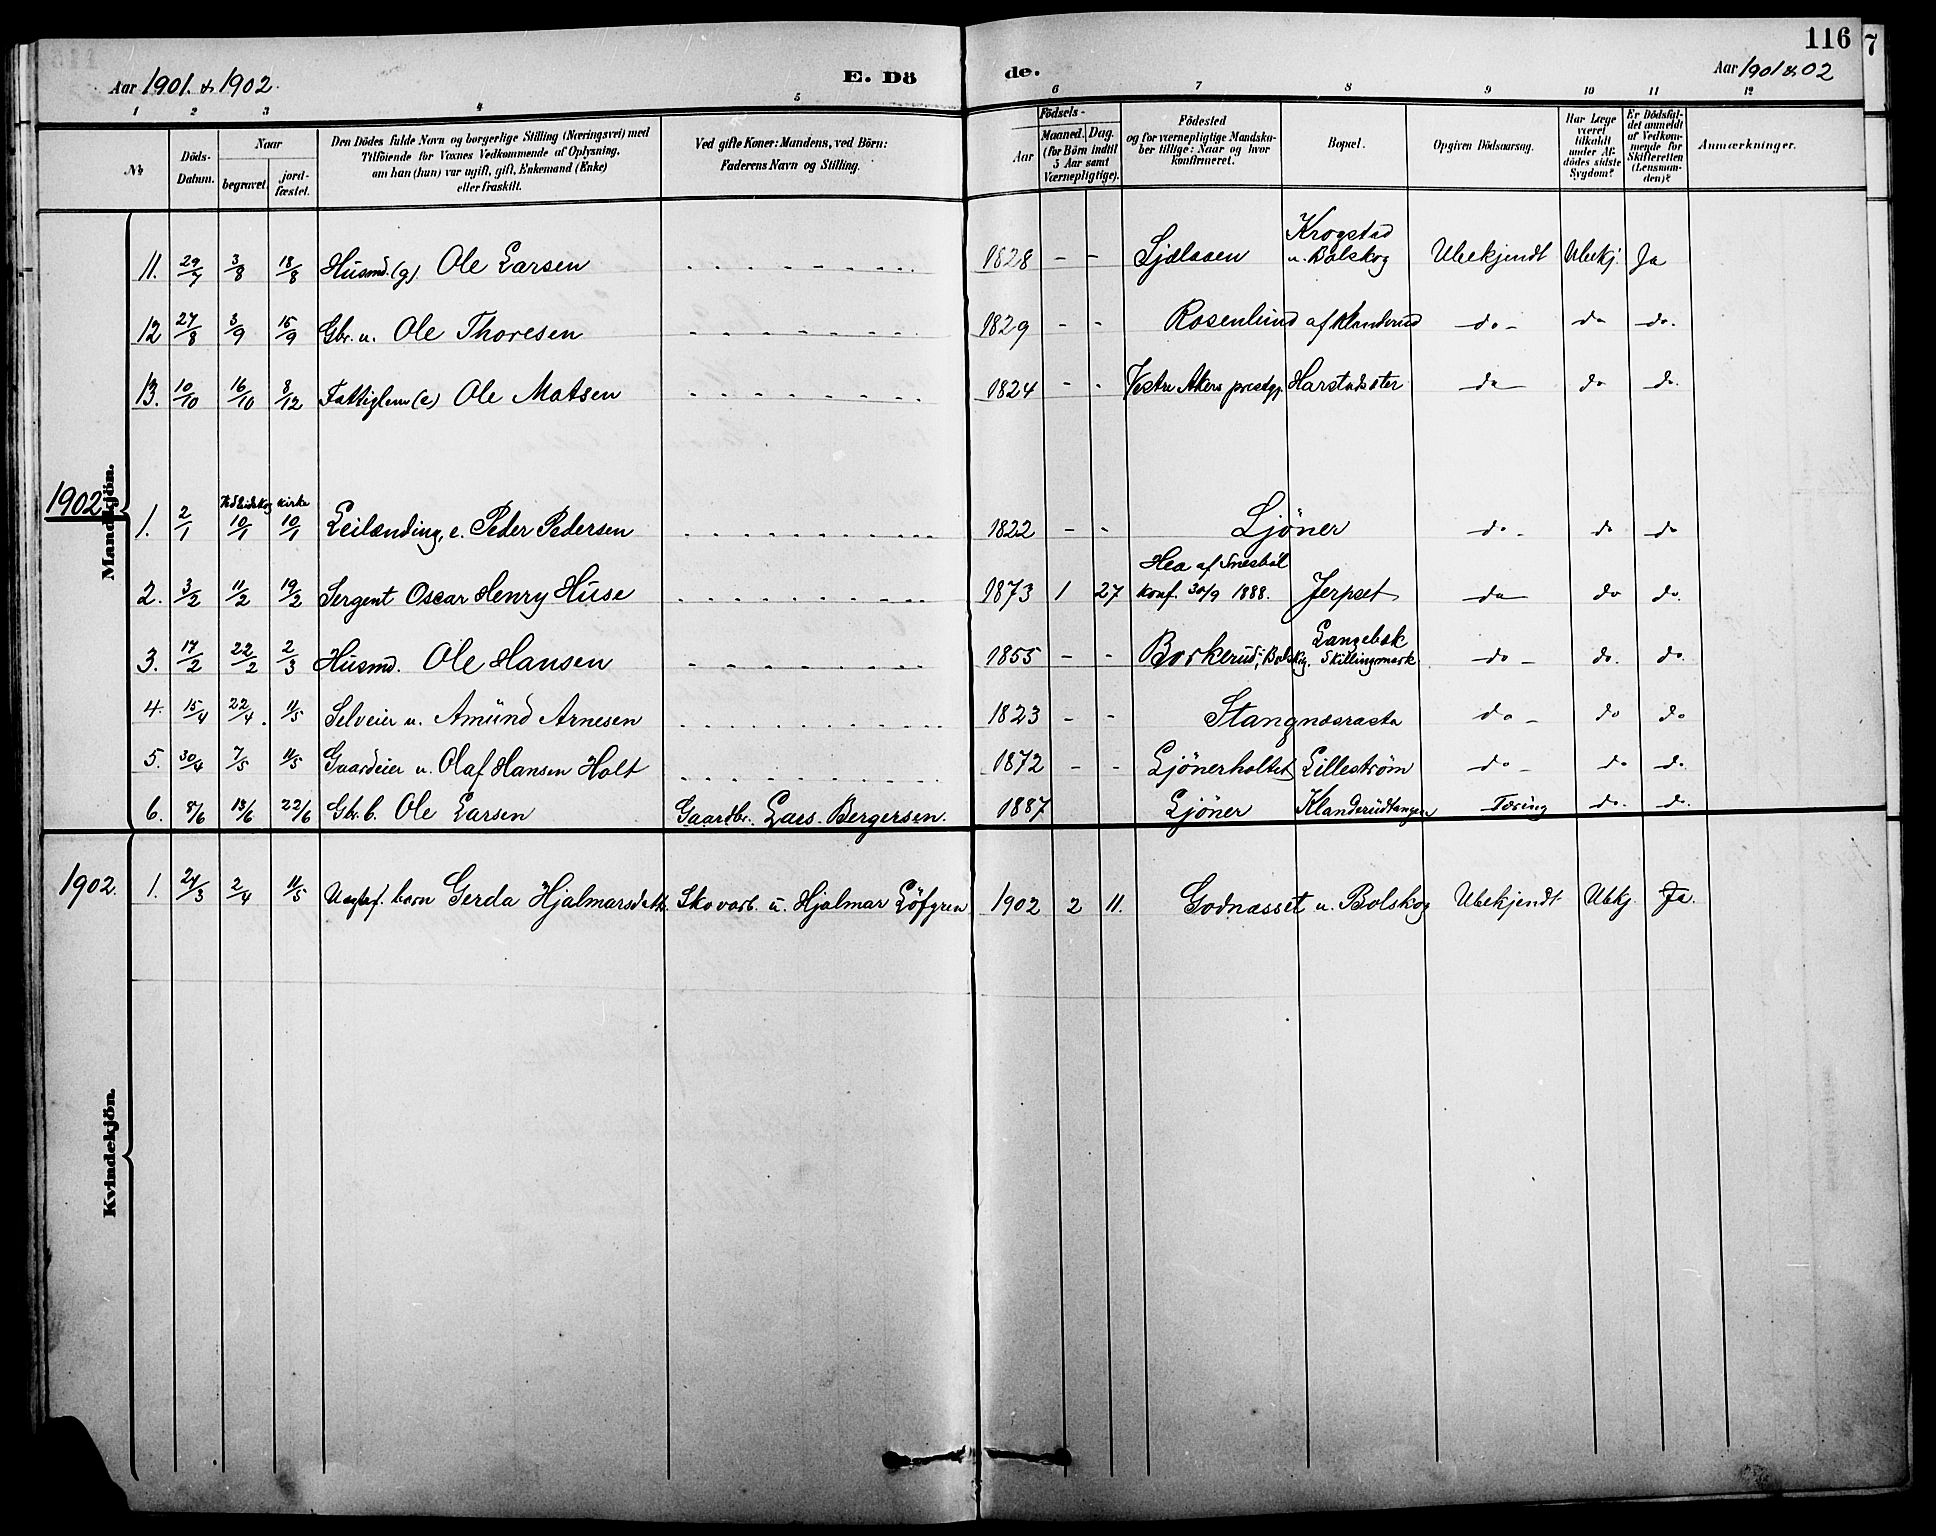 116
7
Aar 1901 & 1902.
E. Dö
de.
Aar 1901 & 02
1 2 3 4 5 6 7 8 9 10 11 12
No
Döds-
Datum.
Naar
begravet.
jord-
fæstet.
Den Dödes fulde Navn og borgerlige Stilling (Næringsvei) med
Tilföiende for Voxnes Vedkommende af Oplysning,
om han (hun) var ugift, gift, Enkemand (Enke)
eller fraskilt.
Ved gifte Koner: Mandens, ved Börn:
Faderens Navn og Stilling.
Födsels-
Aar
Maaned. Dag.
(for Börn indtil
5 Aar samt
Værnepligtige).
Födested
og for værnepligtige Mandska-
ber tillige: Naar og hvor
konfirmeret.
Bopæl.
Opgiven Dödsaarsag.
Har Læge
været
tilkaldt
under Af-
dödes sidste
Sygdom?
Er Dödsfal-
det anmeldt
af Vedkom-
mende for
Skifteretten
(Lensman-
den)?
Anmærkninger.
Mandkjön.
11. 29/7 3/8 18/8 Husmd. (g). Ole Larsen 1828 - - Krogstad u. Bolskog Ubekjendt Ubekj. Ja
12 27/8 3/9 15/9 Gbr. u. Ole Thoresen 1829 - - Rosenlund af Klanderud do - do do.
13. 10/10 16/10 8/12 Fattiglem (e) Ole Matsen 1824 - - Vestre Akers prestgj. do do do.
1902
kirke
1. 2/1 10/1 10/1 Leilænding, e. Peder Pedersen 1822 - - Ljöner do - do do
2. 3/2 11/2 19/2 Sergent Oscar Henry Huse 1873 1 27 Hea af Snesböl konf. 30/9 1888. Jerpset do do do.
3. 17/2 22/2 2/3 Husmd. Ole Hansen 1855 - - Borkerud, Bolskg. Langebæk Skillingsmark do - do. do.
4. 15/4 22/4. 11/5 Selveier u. Amünd Arnesen 1823 - - Stangnæsrasta do - do do
5. 30/4 7/5 11/5 Gaardeier u. Olaf Hansen Holt 1872 - - Ljönerholtet Lilleström do - do do.
6. 8/6 13/6 22/6 Gbr. b. Ole Larsen Gaardbr. Lars Bergersen. 1887 Ljöner Klanderudtangen Tæring do. do.
1902. 1. 27/3 2/4 11/5 Uægtef. barn Gerda Hjalmarsdatt. Skovarb. u. Hjalmar Löfgren 1902 2 11. Godnæsset u. Bolskog Ubekjendt Ubkj. Ja.
Kvindekjön.